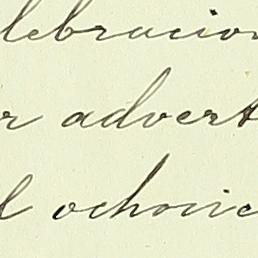 lebracion
r advert
l ochocie